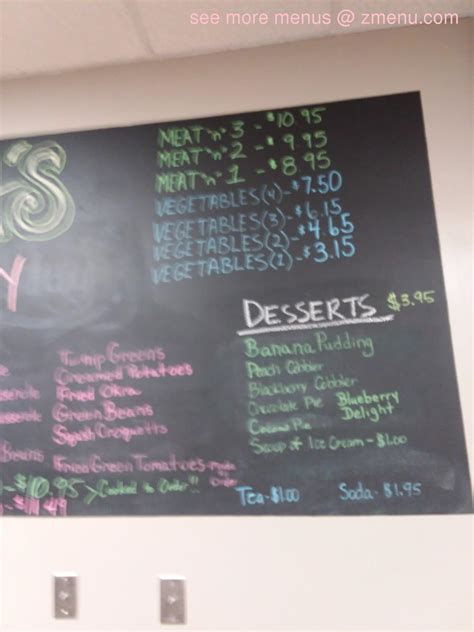 see more menus @ zmenu.com
'S
MEAT 'n' 3 - $10.95
MEAT 'n' 2 - $9.95
MEAT 'n' 1 - $8.95
VEGETABLES(4) - $7.50
VEGETABLES(3) - $6.15
VEGETABLES(2) - $4.65
VEGETABLES(1) - $3.15
Y
DESSERTS $3.95
Banana Pudding
Peach Cobbler
Blackberry Cobbler
Chocolate Pie
Blueberry Delight
Coconut Pie
Scoop of Ice Cream - $1.00
Turnip Greens
Creamed Potatoes
Fried Okra
Green Beans
Squash Croquetts
Beans
Fried Green Tomatoes - Made to Order
- $10.95 > Cooked to Order!!
Tea - $1.00
Soda - $1.95